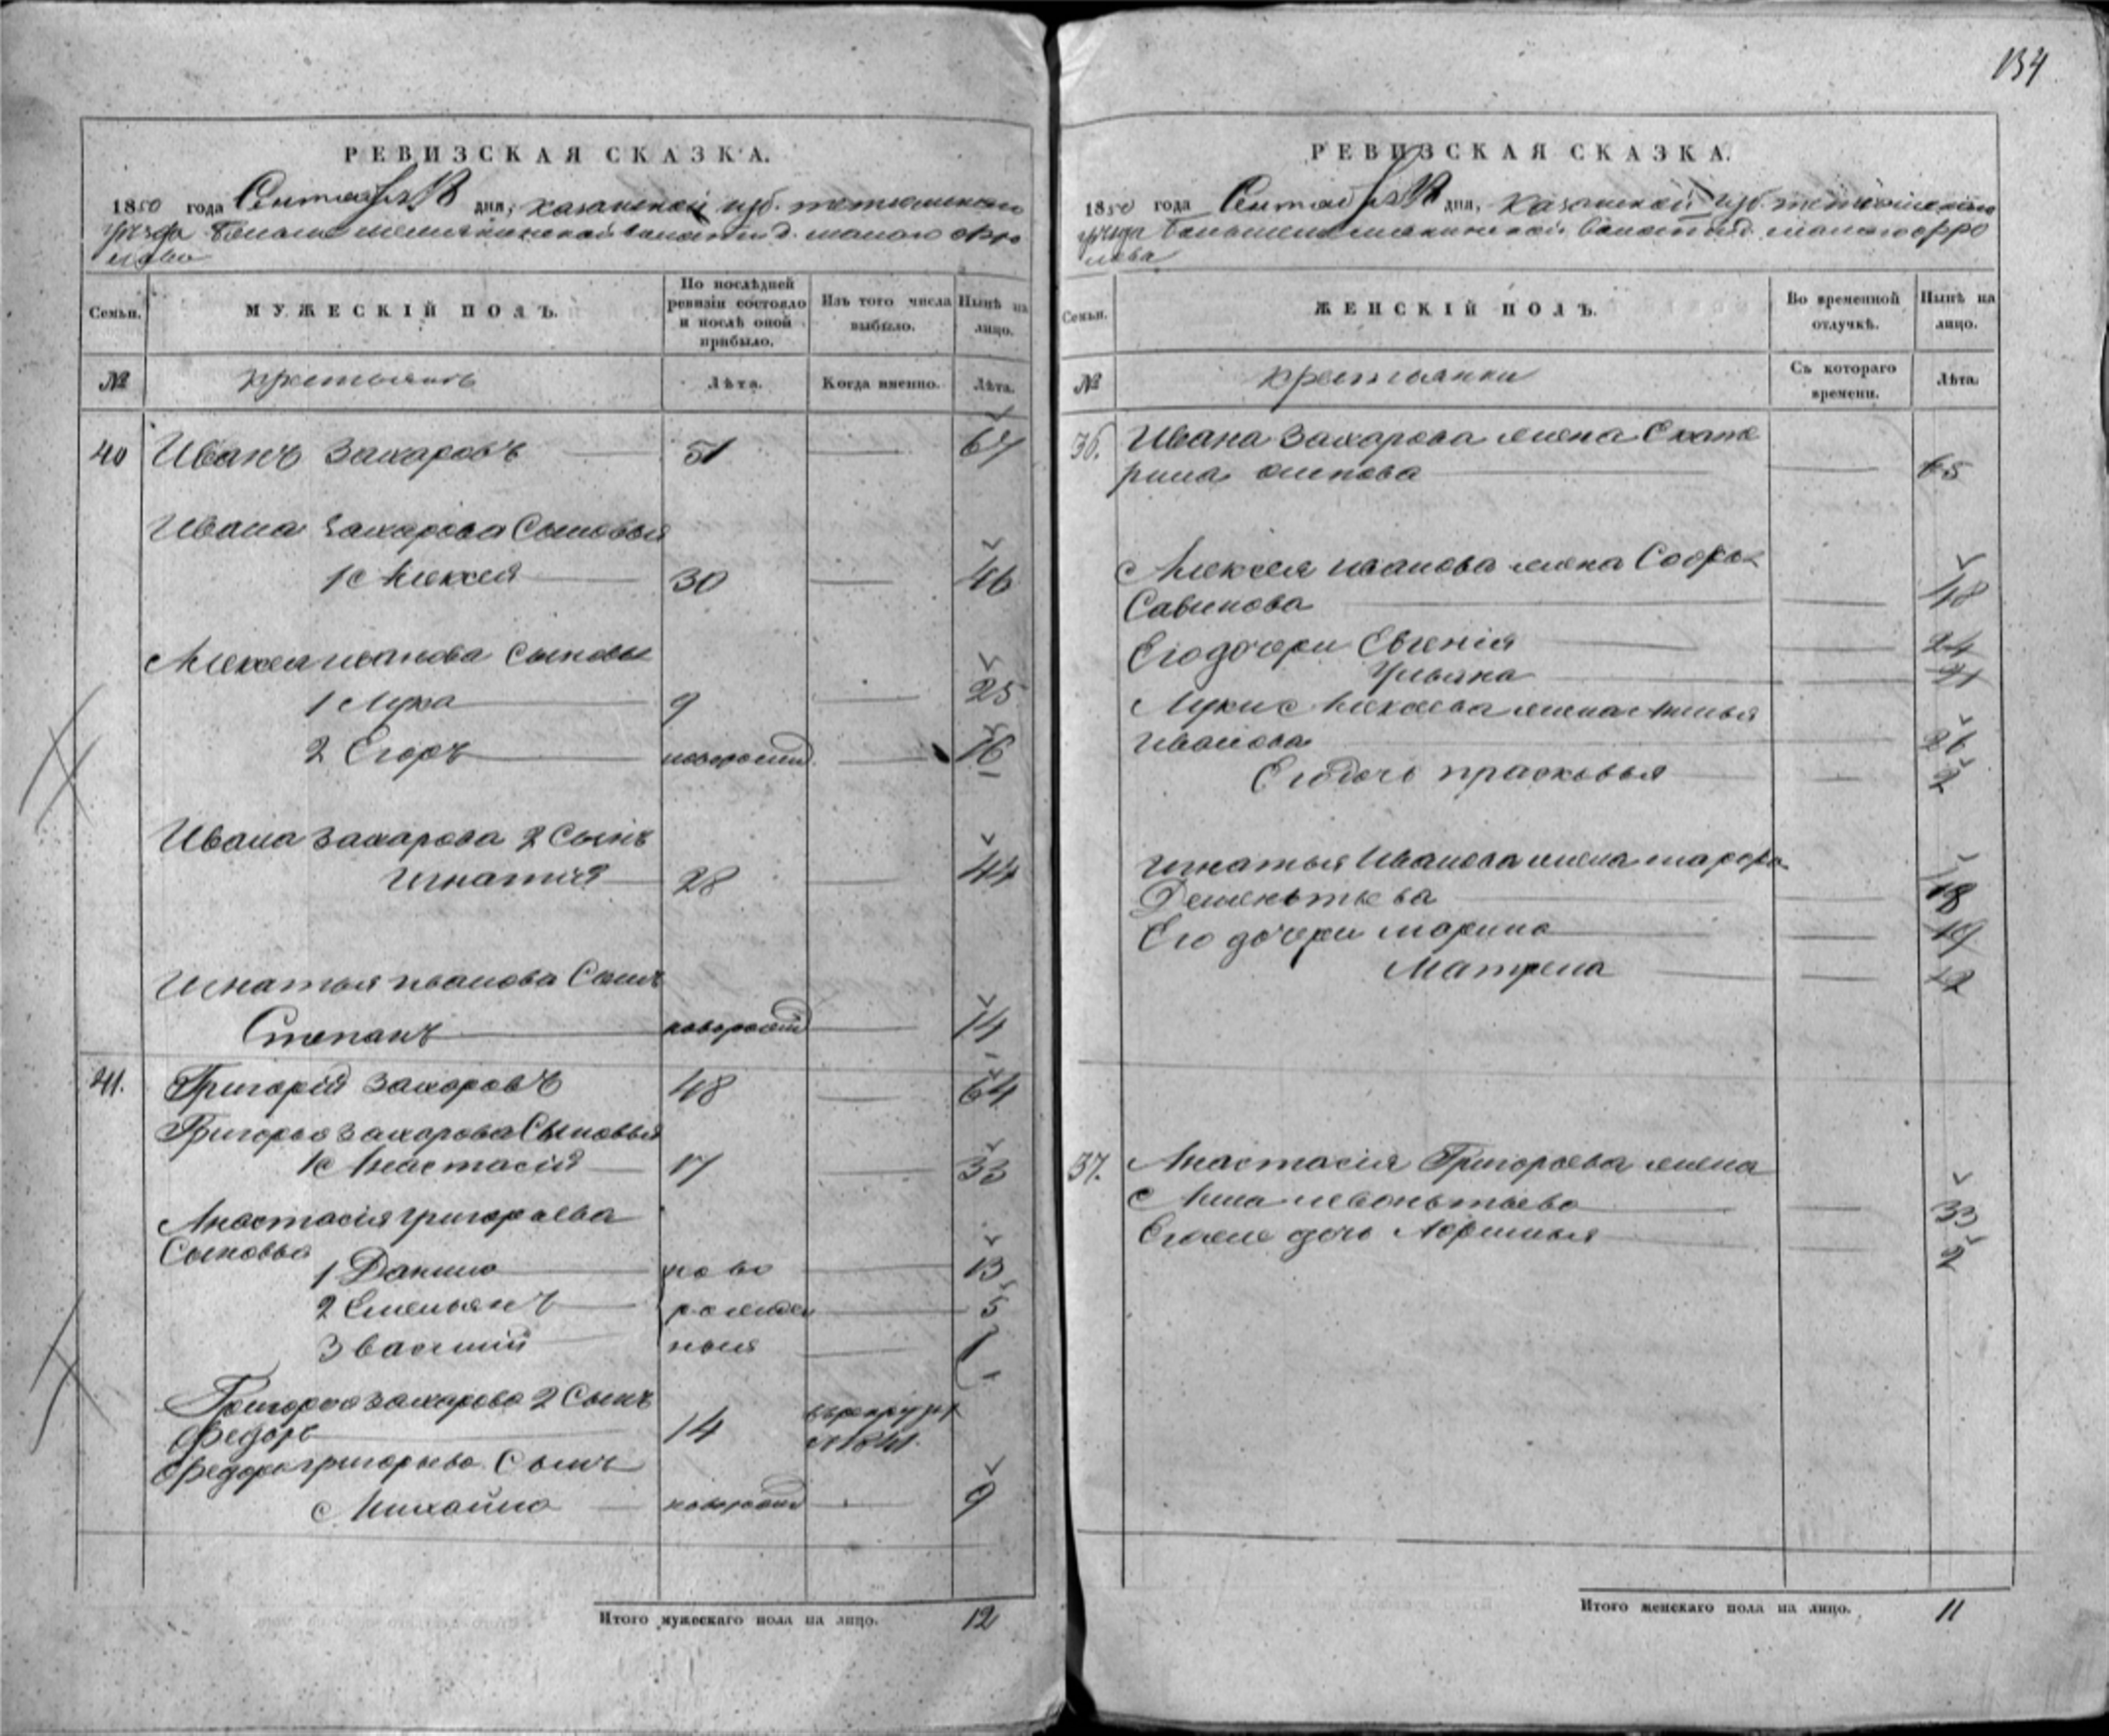 134
РЕВИЗСКАЯ СКАЗКА.
1850 года Сентября 18 дня, казанской губ. тетюшского
уѣзда Большемемякинской волости д. малого фро
лова
Семьи. МУЖЕСКІЙ ПОЛЪ. По послѣдней ревизіи состояло и послѣ оной прибыло. Изъ того числа выбыло. Нынѣ на лицо.
№ крестьянъ Лѣта. Когда именно. Лѣта.
40 Иванъ Захаровъ 51 67
Ивана Захарова Сыновья
1 Алексей 30 46
Алексея иванова сыновья
1 Лука 9 25
2 Егоръ новорожд. 16
Ивана Захарова 2 Сынъ
Игнатій 28 44
Игнатья иванова Сынъ
Степанъ новорожд 14
41. Григорій Захаровъ 48 64
Григорья Захарова Сыновья
1 Анастасій 17 33
Анастасія григорьева
Сыновья
1 Данило ново 13
2 Емельянъ рожден 5
3 василій ныя 1
Григорья захарова 2 Сынъ
Федоръ 14 врекруты 1841.
Федора григорьева Сынъ
Михайло новорожд 9
Итого мужескаго пола на лицо. 12
РЕВИЗСКАЯ СКАЗКА.
1850 года Сентября 18 дня, Казанской губ. тетюшского
уѣзда Большемемякинской волости д. малого фро
лова
Семьи. ЖЕНСКІЙ ПОЛЪ. Во временной отлучкѣ. Нынѣ на лицо.
№ крестьянки Съ котораго времени. Лѣта.
36. Ивана Захарова жена Екате
рина осипова 65
Алексея иванова жена Софья
Савинова 48
Его дочери Евгенія 24
Ульяна
Луки Алексеева жена
Иванова 26
Его дочь прасковья 2
Игнатья Иванова жена марфа
Дементьева 48
Его дочери марина 19
Матрена 12
37. Анастасія Григорьева жена
Анна левонтьева 33
Его дочь 2
Итого женскаго пола на лицо. 11